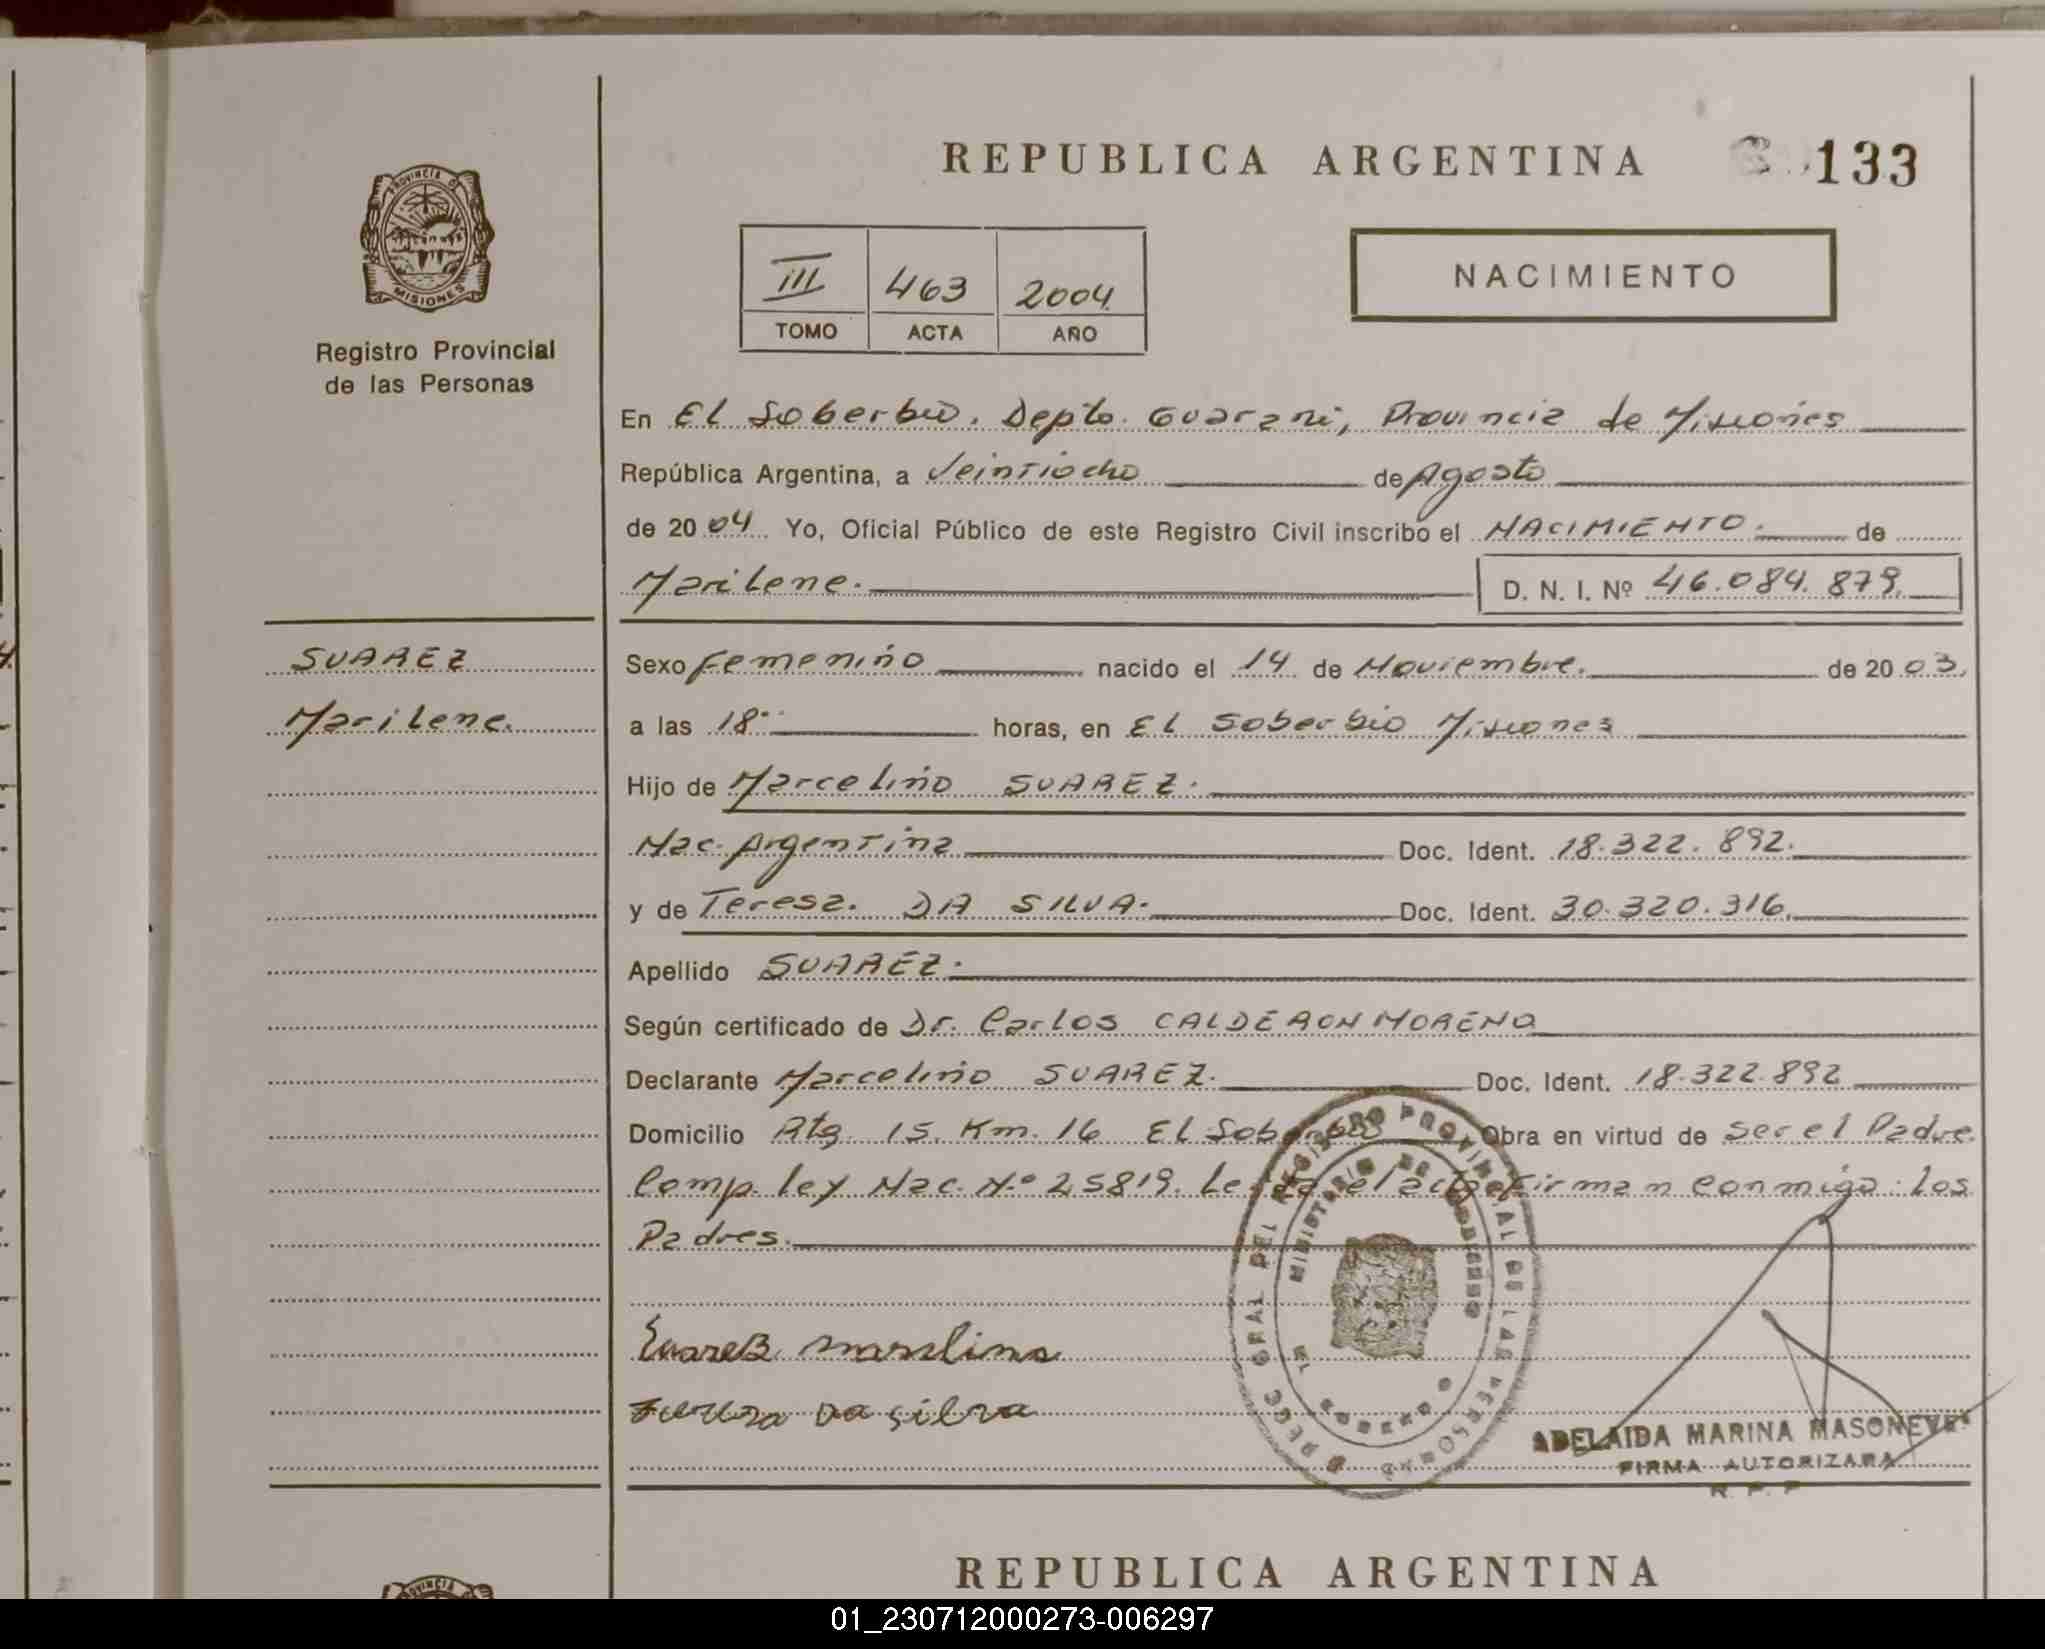 REPUBLICA ARGENTINA 133
PROVINCIA DE
MISIONES
Registro Provincial
de las Personas
III 463 2004
TOMO ACTA AÑO
NACIMIENTO
En El Soberbio, Depto. Guarani, Provincia de Misiones
República Argentina, a Veintiocho de Agosto
de 2004 Yo, Oficial Público de este Registro Civil inscribo el NACIMIENTO. de
Marilene. D. N. I. Nº 46.084.879.
SUAREZ
Marilene.
Sexo Femenino nacido el 14 de Noviembre. de 2003.
a las 18 horas, en El Soberbio Misiones
Hijo de Marcelino SUAREZ.
Nac. Argentina Doc. Ident. 18.322.892.
y de Teresa. DA SILVA. Doc. Ident. 30.320.316.
Apellido SUAREZ.
Según certificado de Dr. Carlos CALDERON MORENO
Declarante Marcelino SUAREZ. Doc. Ident. 18.322.892
Domicilio Rta. 15. Km. 16 El Soberbio Obra en virtud de ser el Padre
Comp. ley Nac. N.º 25819. Leida el acta Firman conmigo: los
Padres.
Suarez marselino
Teresa Da silva
DIREC. GRAL DEL REGISTRO PROVINCIAL DE LAS PERSONAS
MINISTERIO DE GOBIERNO
EL SOBERBIO
ADELAIDA MARINA MASONEVE
FIRMA AUTORIZADA
R. P. P
REPUBLICA ARGENTINA
PROVINCIA
01_230712000273-006297